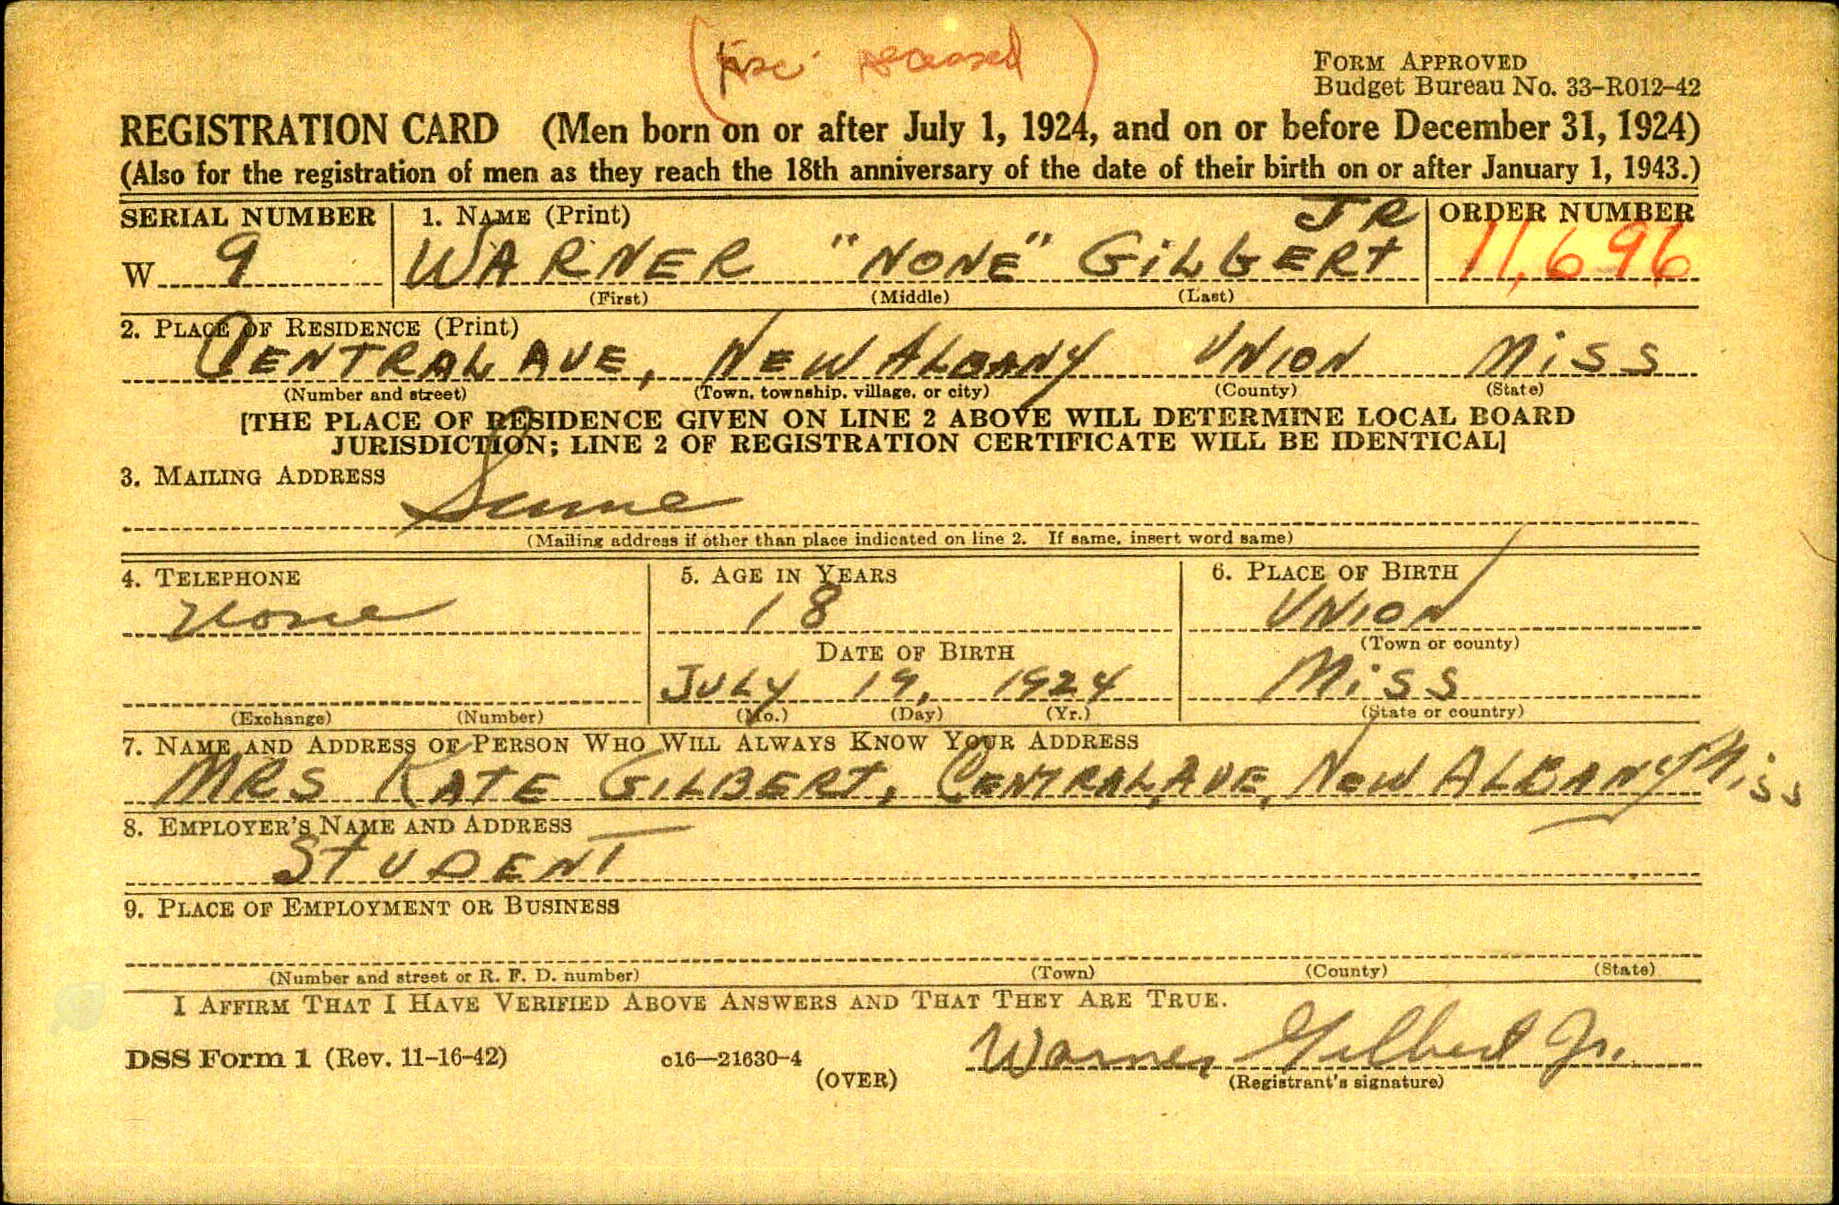 FORM APPROVED
Budget Bureau No. 33-R012-42
REGISTRATION CARD (Men born on or after July 1, 1924, and on or before December 31, 1924)
(Also for the registration of men as they reach the 18th anniversary of the date of their birth on or after January 1, 1943.)
SERIAL NUMBER 1. NAME (Print) JR ORDER NUMBER
W 9 WARNER "NONE" GILBERT 11,696
(First) (Middle) (Last)
2. PLACE OF RESIDENCE (Print)
CENTRAL AVE, NEW ALBANY UNION MISS
(Number and street) (Town, township, village, or city) (County) (State)
[THE PLACE OF RESIDENCE GIVEN ON LINE 2 ABOVE WILL DETERMINE LOCAL BOARD
JURISDICTION; LINE 2 OF REGISTRATION CERTIFICATE WILL BE IDENTICAL]
3. MAILING ADDRESS
Same
(Mailing address if other than place indicated on line 2. If same, insert word same)
4. TELEPHONE 5. AGE IN YEARS 6. PLACE OF BIRTH
None 18 UNION
(Town or county)
DATE OF BIRTH
JULY 19, 1924 MISS
(Exchange) (Number) (Mo.) (Day) (Yr.) (State or country)
7. NAME AND ADDRESS OF PERSON WHO WILL ALWAYS KNOW YOUR ADDRESS
MRS KATE GILBERT, CENTRAL AVE, NEW ALBANY MISS
8. EMPLOYER'S NAME AND ADDRESS
STUDENT
9. PLACE OF EMPLOYMENT OR BUSINESS
(Number and street or R. F. D. number) (Town) (County) (State)
I AFFIRM THAT I HAVE VERIFIED ABOVE ANSWERS AND THAT THEY ARE TRUE.
DSS Form 1 (Rev. 11-16-42) c16—21630-4 Warner Gilbert Jr.
(OVER) (Registrant's signature)